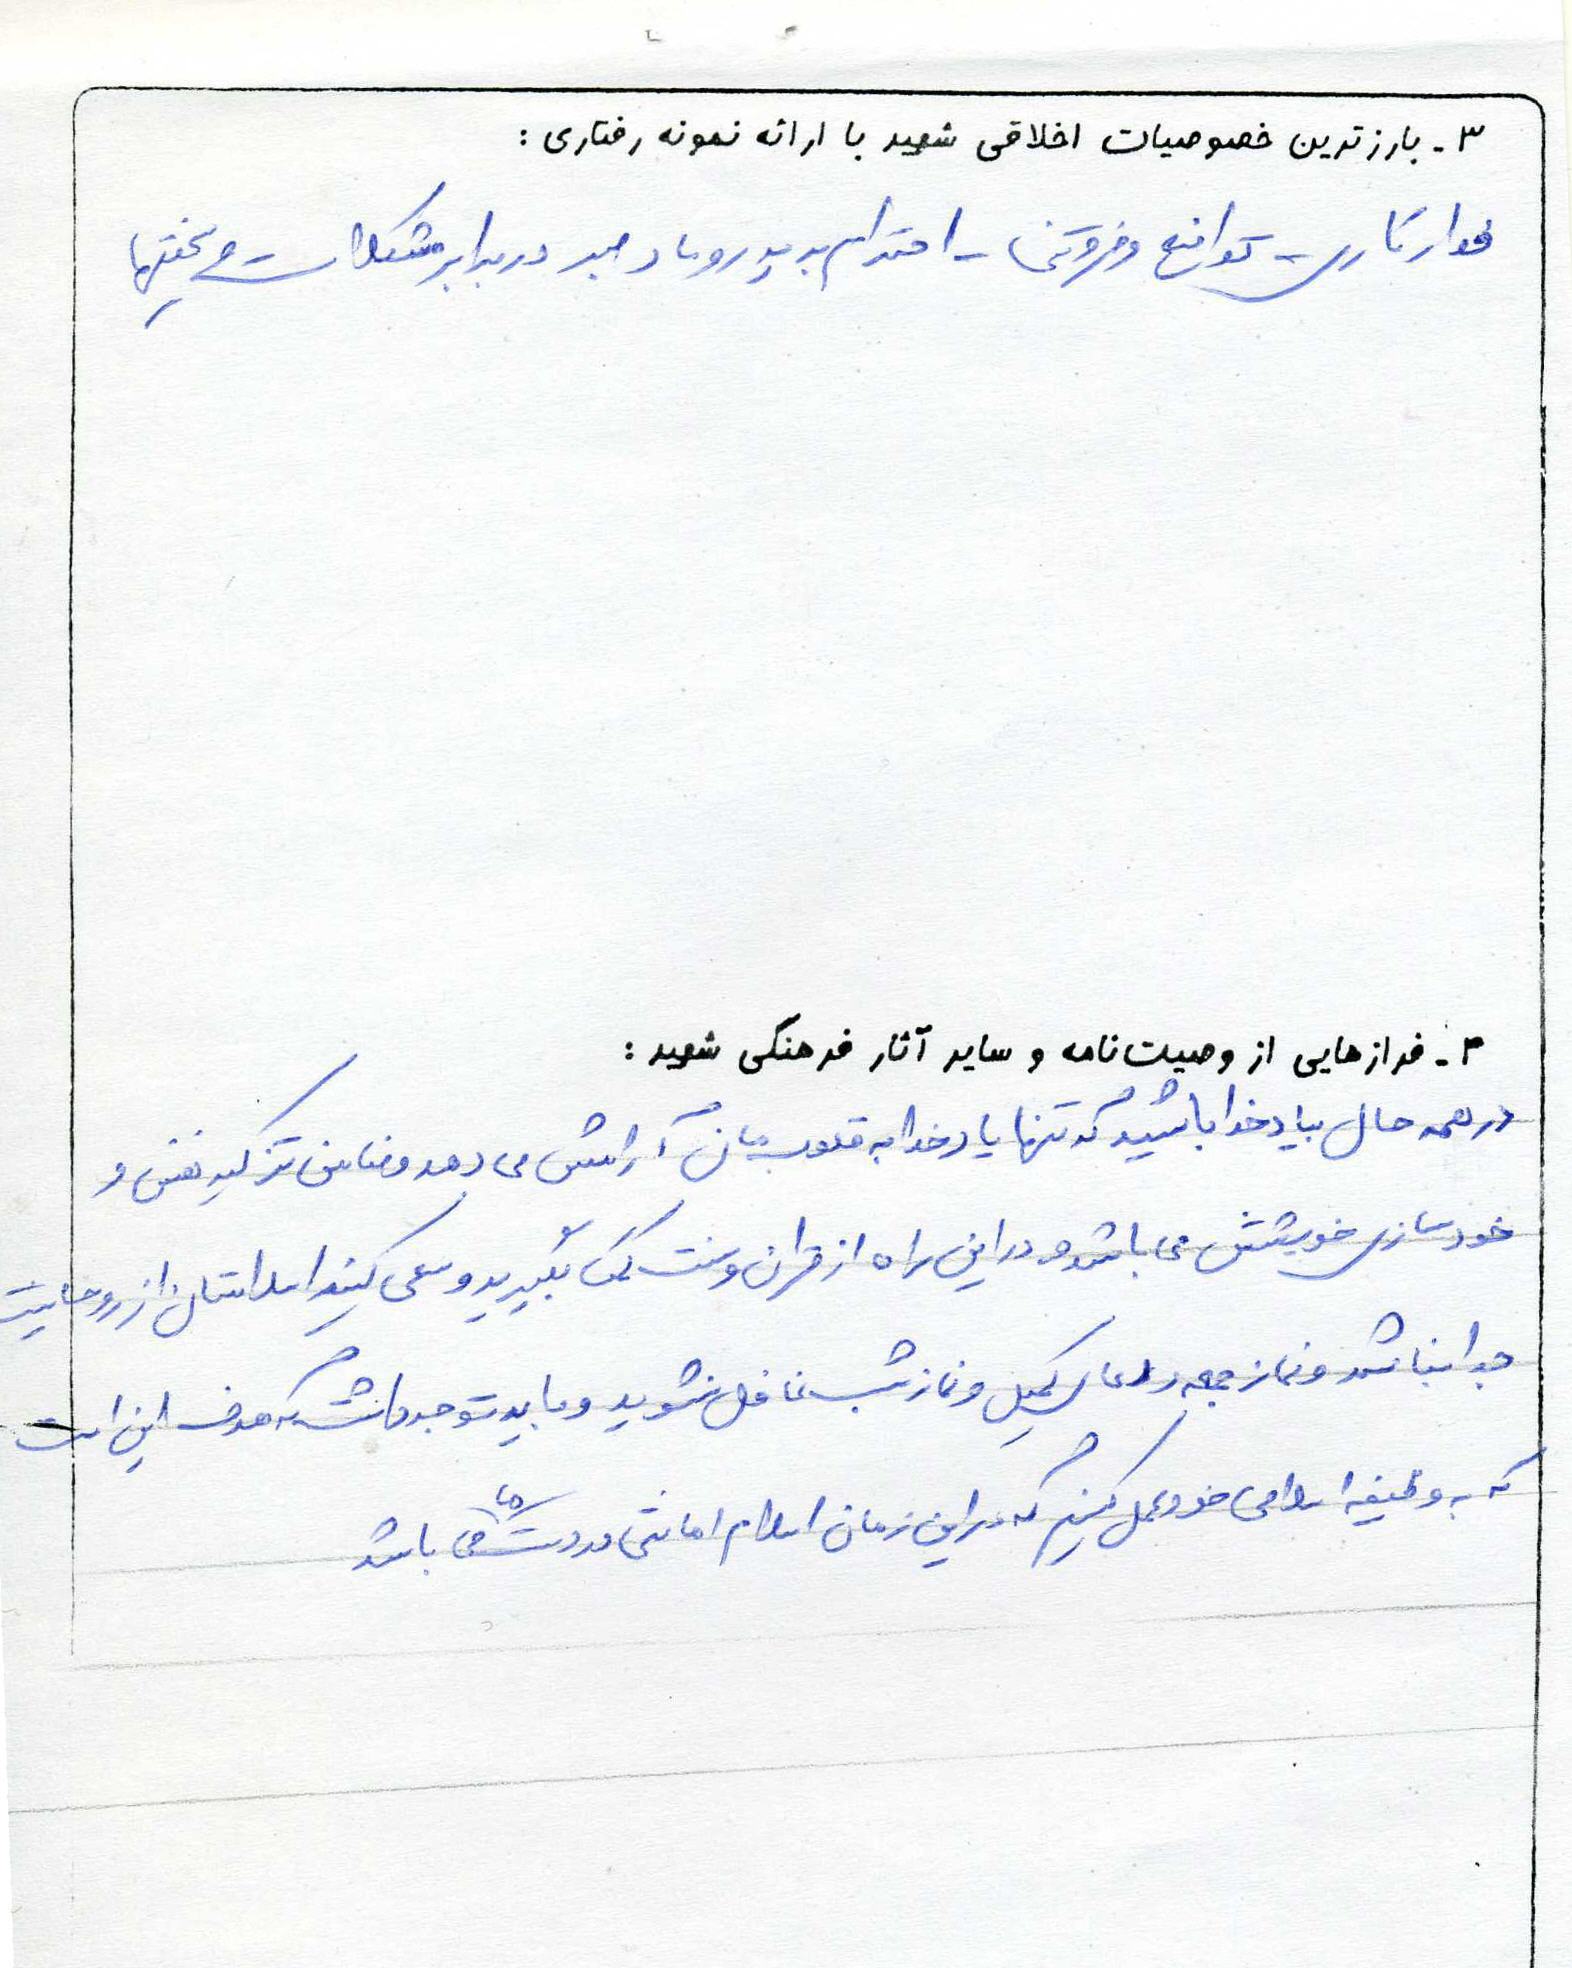 ۳ـ بارزترین خصوصیات اخلاقی شهید با ارائه نمونه رفتاری :
تواضع و فروتنی - احترام به پدر و مادر صبر در برابر مشکلات و سختیها
۴ـ فرازهایی از وصیت‌نامه و سایر آثار فرهنگی شهید :
در همه حال بیاد خدا باشید که تنها یاد خدا به قلوب‌مان آرامش می دهد و ضامن تزکیه نفس و
خودسازی خویشتن می باشد و در این راه از قرآن و سنت کمک بگیرید و سعی کنید اسلامتان از روحانیت
جدا نباشد و نماز جمعه و دعای کمیل و نماز شب غافل نشوید و باید توجه داشت که هدف این است
که به وظیفه اسلامی خود عمل کنیم که در این زمان اسلام امانتی در دست ما می باشد